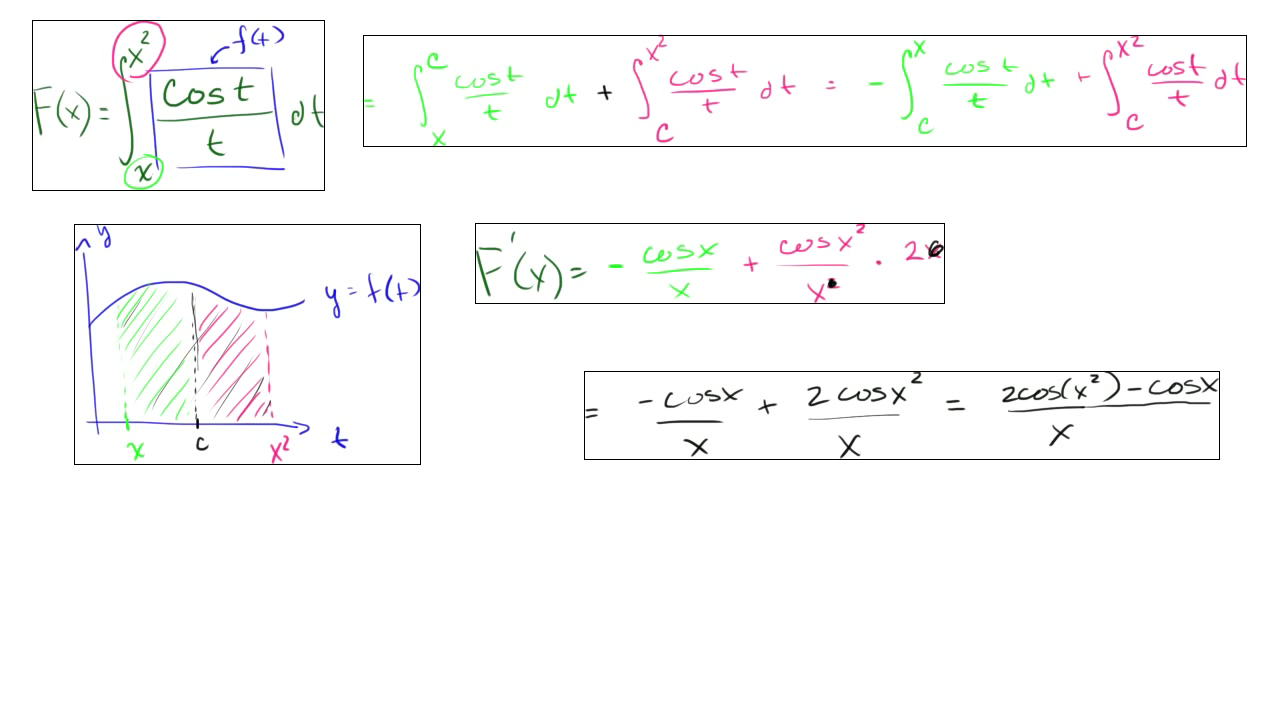 F(x) = ∫_x^{x²} cos t / t dt
f(t)
= ∫_x^c cos t / t dt + ∫_c^{x²} cos t / t dt = - ∫_c^x cos t / t dt + ∫_c^{x²} cos t / t dt
y
y = f(t)
x c x² t
F'(x) = - cos x / x + cos x² / x • 2
= -cos x / x + 2 cos x² / x = 2cos(x²) - cos x / x